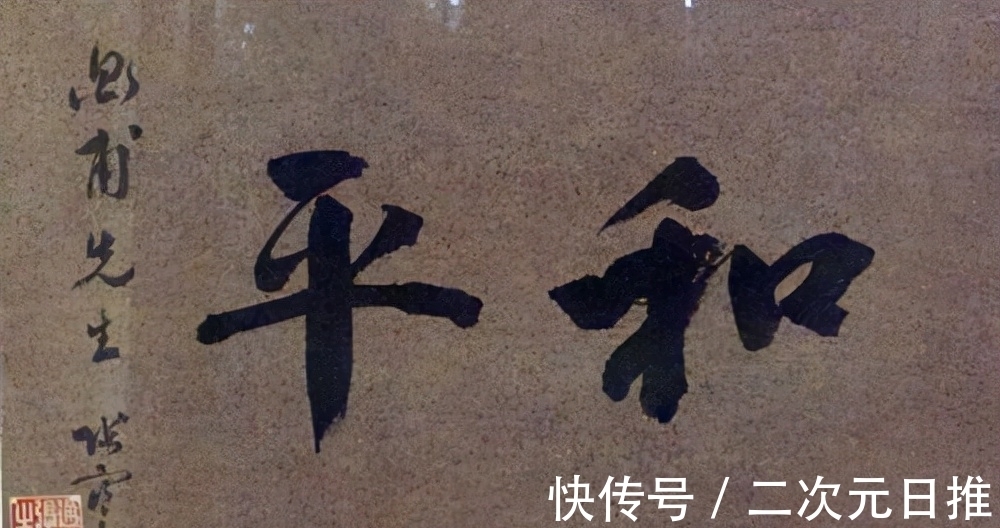 和平
甫先生 张
快传号 / 二次元日推